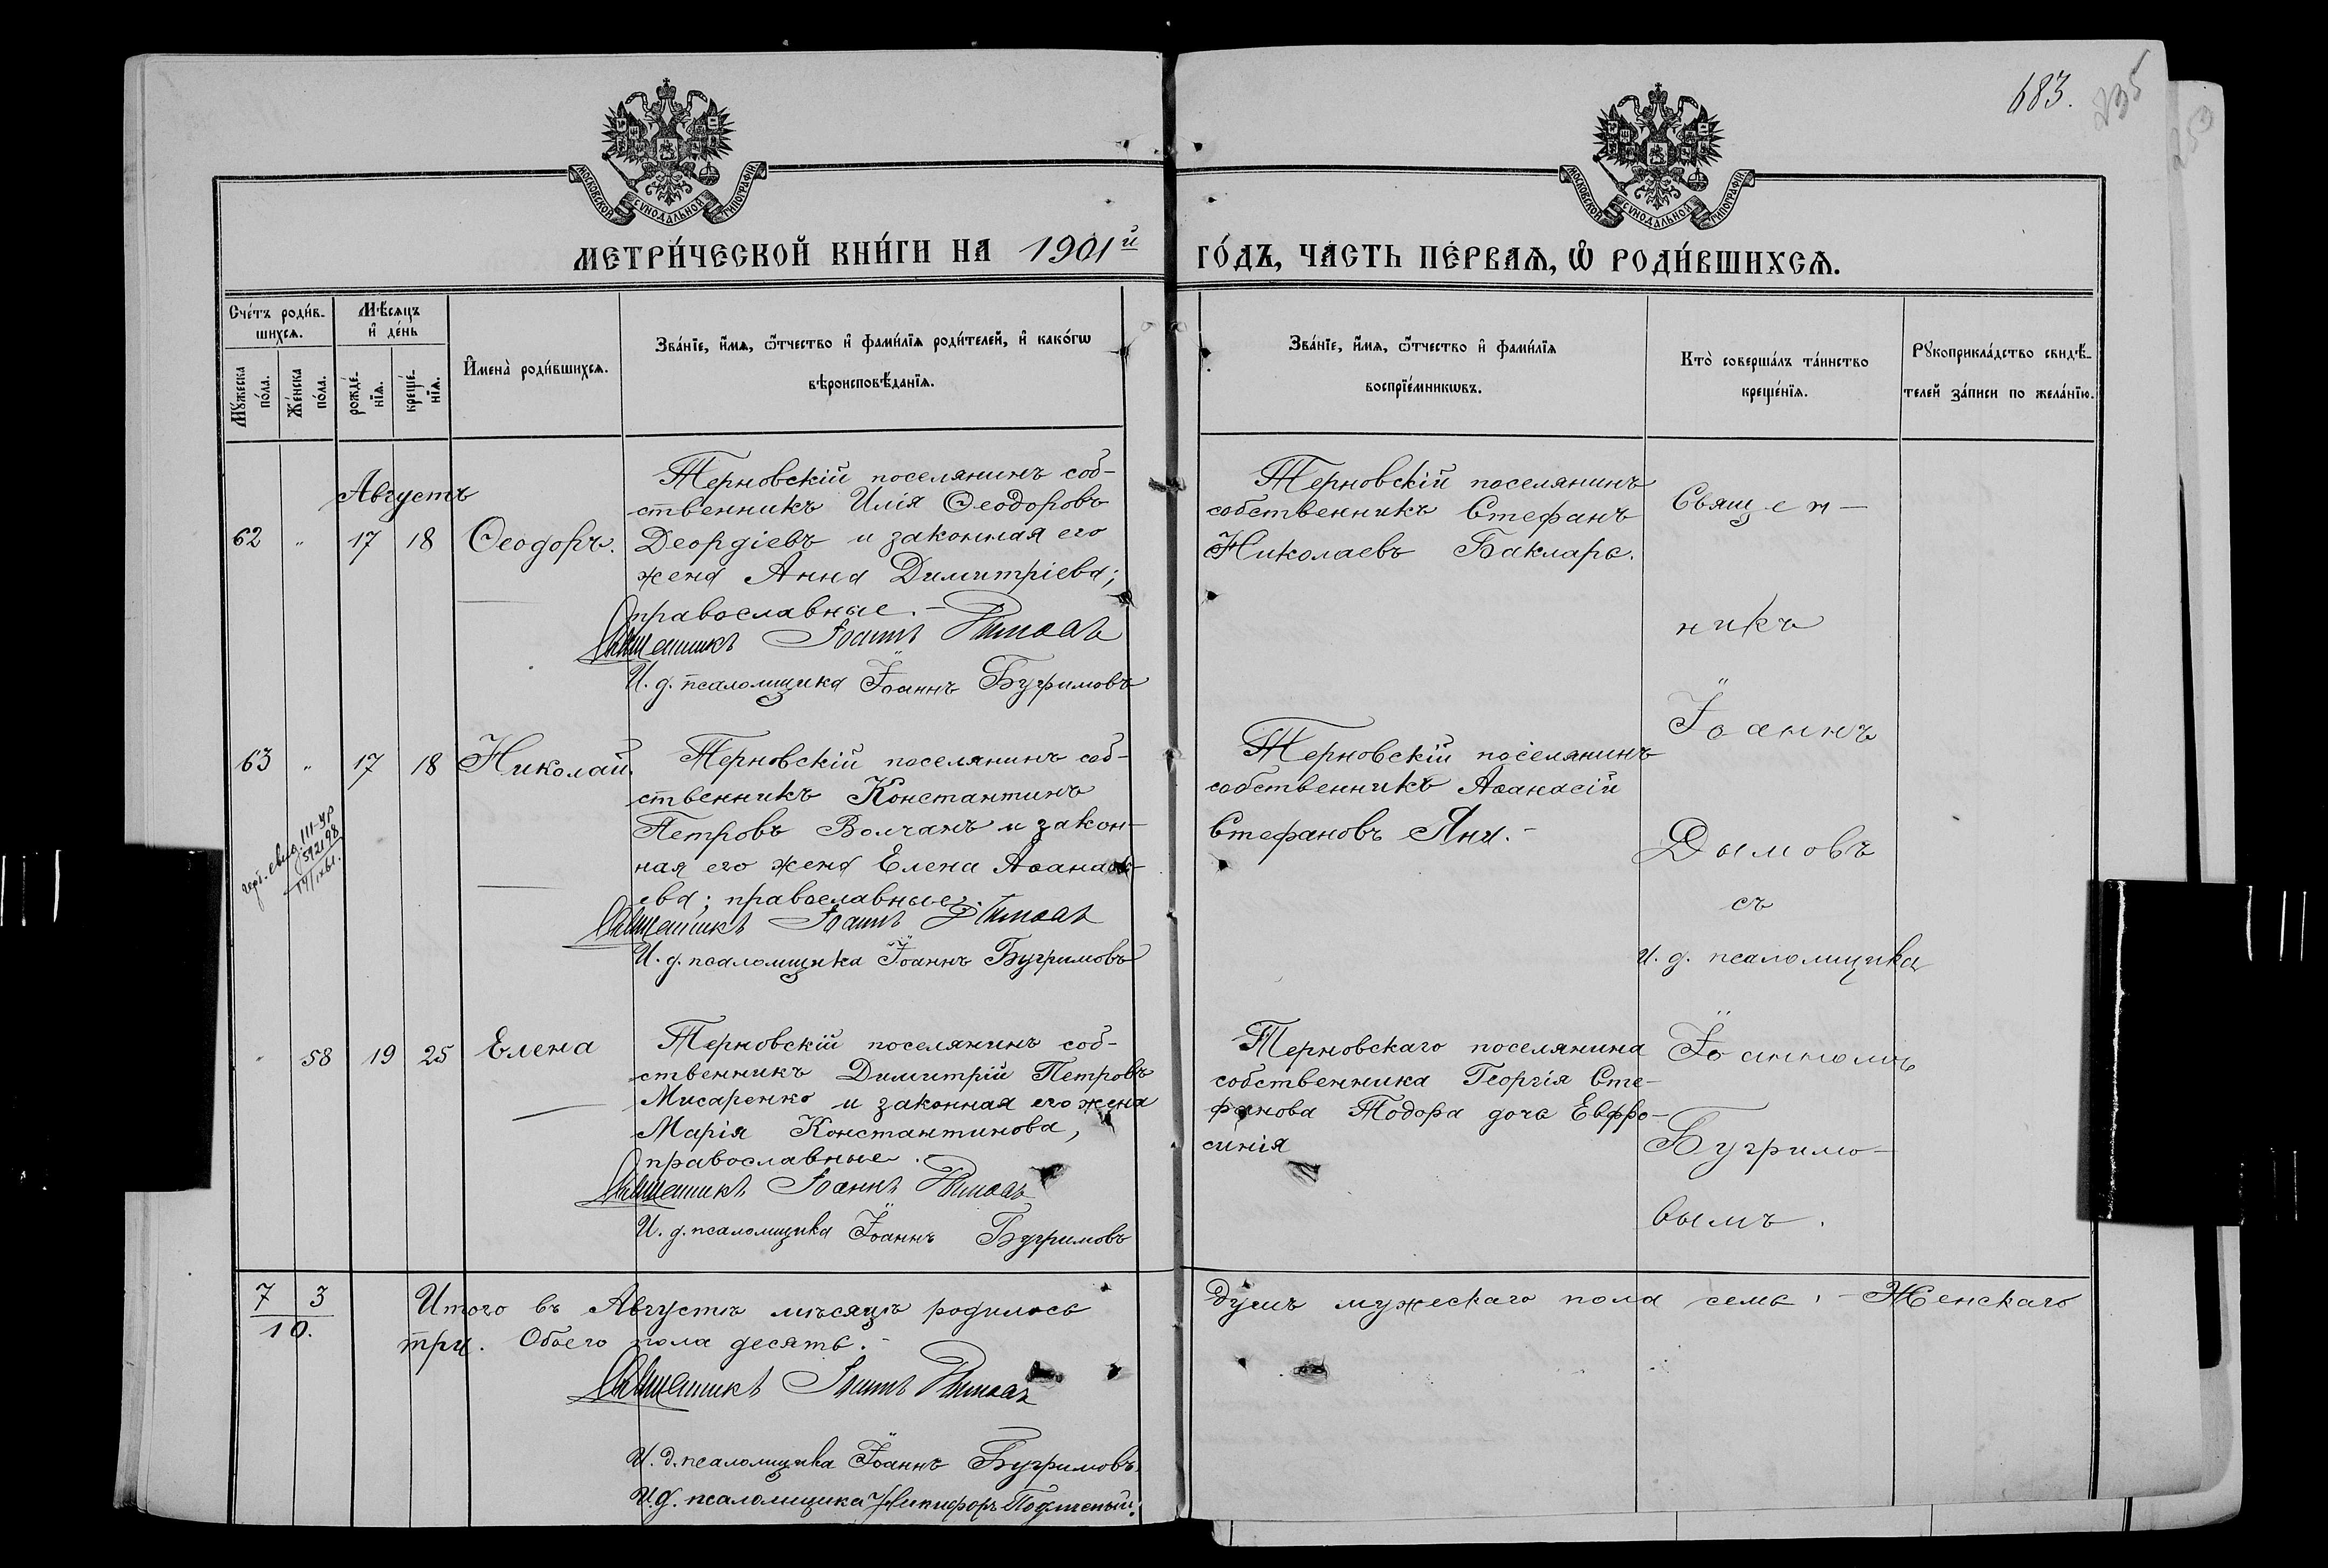 683.
235
МОСКОВСКОЙ СѴНОДАЛЬНОЙ ТИПОГРАФІИ
МОСКОВСКОЙ СѴНОДАЛЬНОЙ ТИПОГРАФІИ
МЕТРИ́ЧЕСКОЙ КНИ́ГИ НА 1901й
ГО́ДЪ, ЧА́СТЬ ПЕ́РВАѦ, Ѡ҆ РОДИ́ВШИХСѦ.
Сче́тъ роди́в-
шихсѧ.
Мꙋ́жеска по́ла.
Же́нска по́ла.
Мѣ́сѧцъ
и҆ де́нь
рожде́-
нїѧ.
креще́-
нїѧ.
И҆мена̀ роди́вшихсѧ.
Зва́нїе, и҆́мѧ, ѻ҆́тчество и҆ фами́лїѧ роди́телей, и҆ како́гѡ
вѣроисповѣ́данїѧ.
Зва́нїе, и҆́мѧ, ѻ҆́тчество и҆ фами́лїѧ
воспрїе́мникѡвъ.
Кто̀ соверша́лъ та́инство
креще́нїѧ.
Рꙋкоприкла́дство свидѣ́-
телей за́писи по жела́нїю.
Августъ
62 " 17 18 Ѳеодоръ.
Терновскій поселянинъ соб-
ственникъ Илія Ѳеодоровъ
Деордіевъ и законная его
жена Анна Димитріева;
православные.-
Священникъ Іоаннъ Дымовъ
И. д. псаломщика Іоаннъ Бугримовъ
Терновскій поселянинъ
собственникъ Стефанъ
Николаевъ Бакларь.
63 " 17 18 Николай.
Терновскій поселянинъ соб-
ственникъ Константинъ
Петровъ Волчанъ и закон-
ная его жена Елена Аѳанась-
ева; православные.
Священникъ Іоаннъ Дымовъ
И. д. псаломщика Іоаннъ Бугримовъ
Терновскій поселянинъ
собственникъ Аѳанасій
Стефановъ Яни.-
свид. III-УР
592198
58 19 25 Елена
Терновскій поселянинъ соб-
ственникъ Димитрій Петровъ
Мисаренко и законная его жена
Марія Константинова,
православные.
Священникъ Іоаннъ Дымовъ
И. д. псаломщика Іоаннъ Бугримовъ
Терновскаго поселянина
собственника Георгія Сте-
фанова Тодора дочь Евфро-
синія
Священ-
никъ
Іоаннъ
Дымовъ
съ
и. д. псаломщика
Іоанномъ
Бугримо-
вымъ.
7 3
10.
Итого въ Августѣ мѣсяцѣ родилось
душъ мужескаго пола семь. - Женскаго
три. Обоего пола десять.-
Священникъ Іоаннъ Дымовъ
И. д. псаломщика Іоаннъ Бугримовъ.
И. д. псаломщика Никифоръ